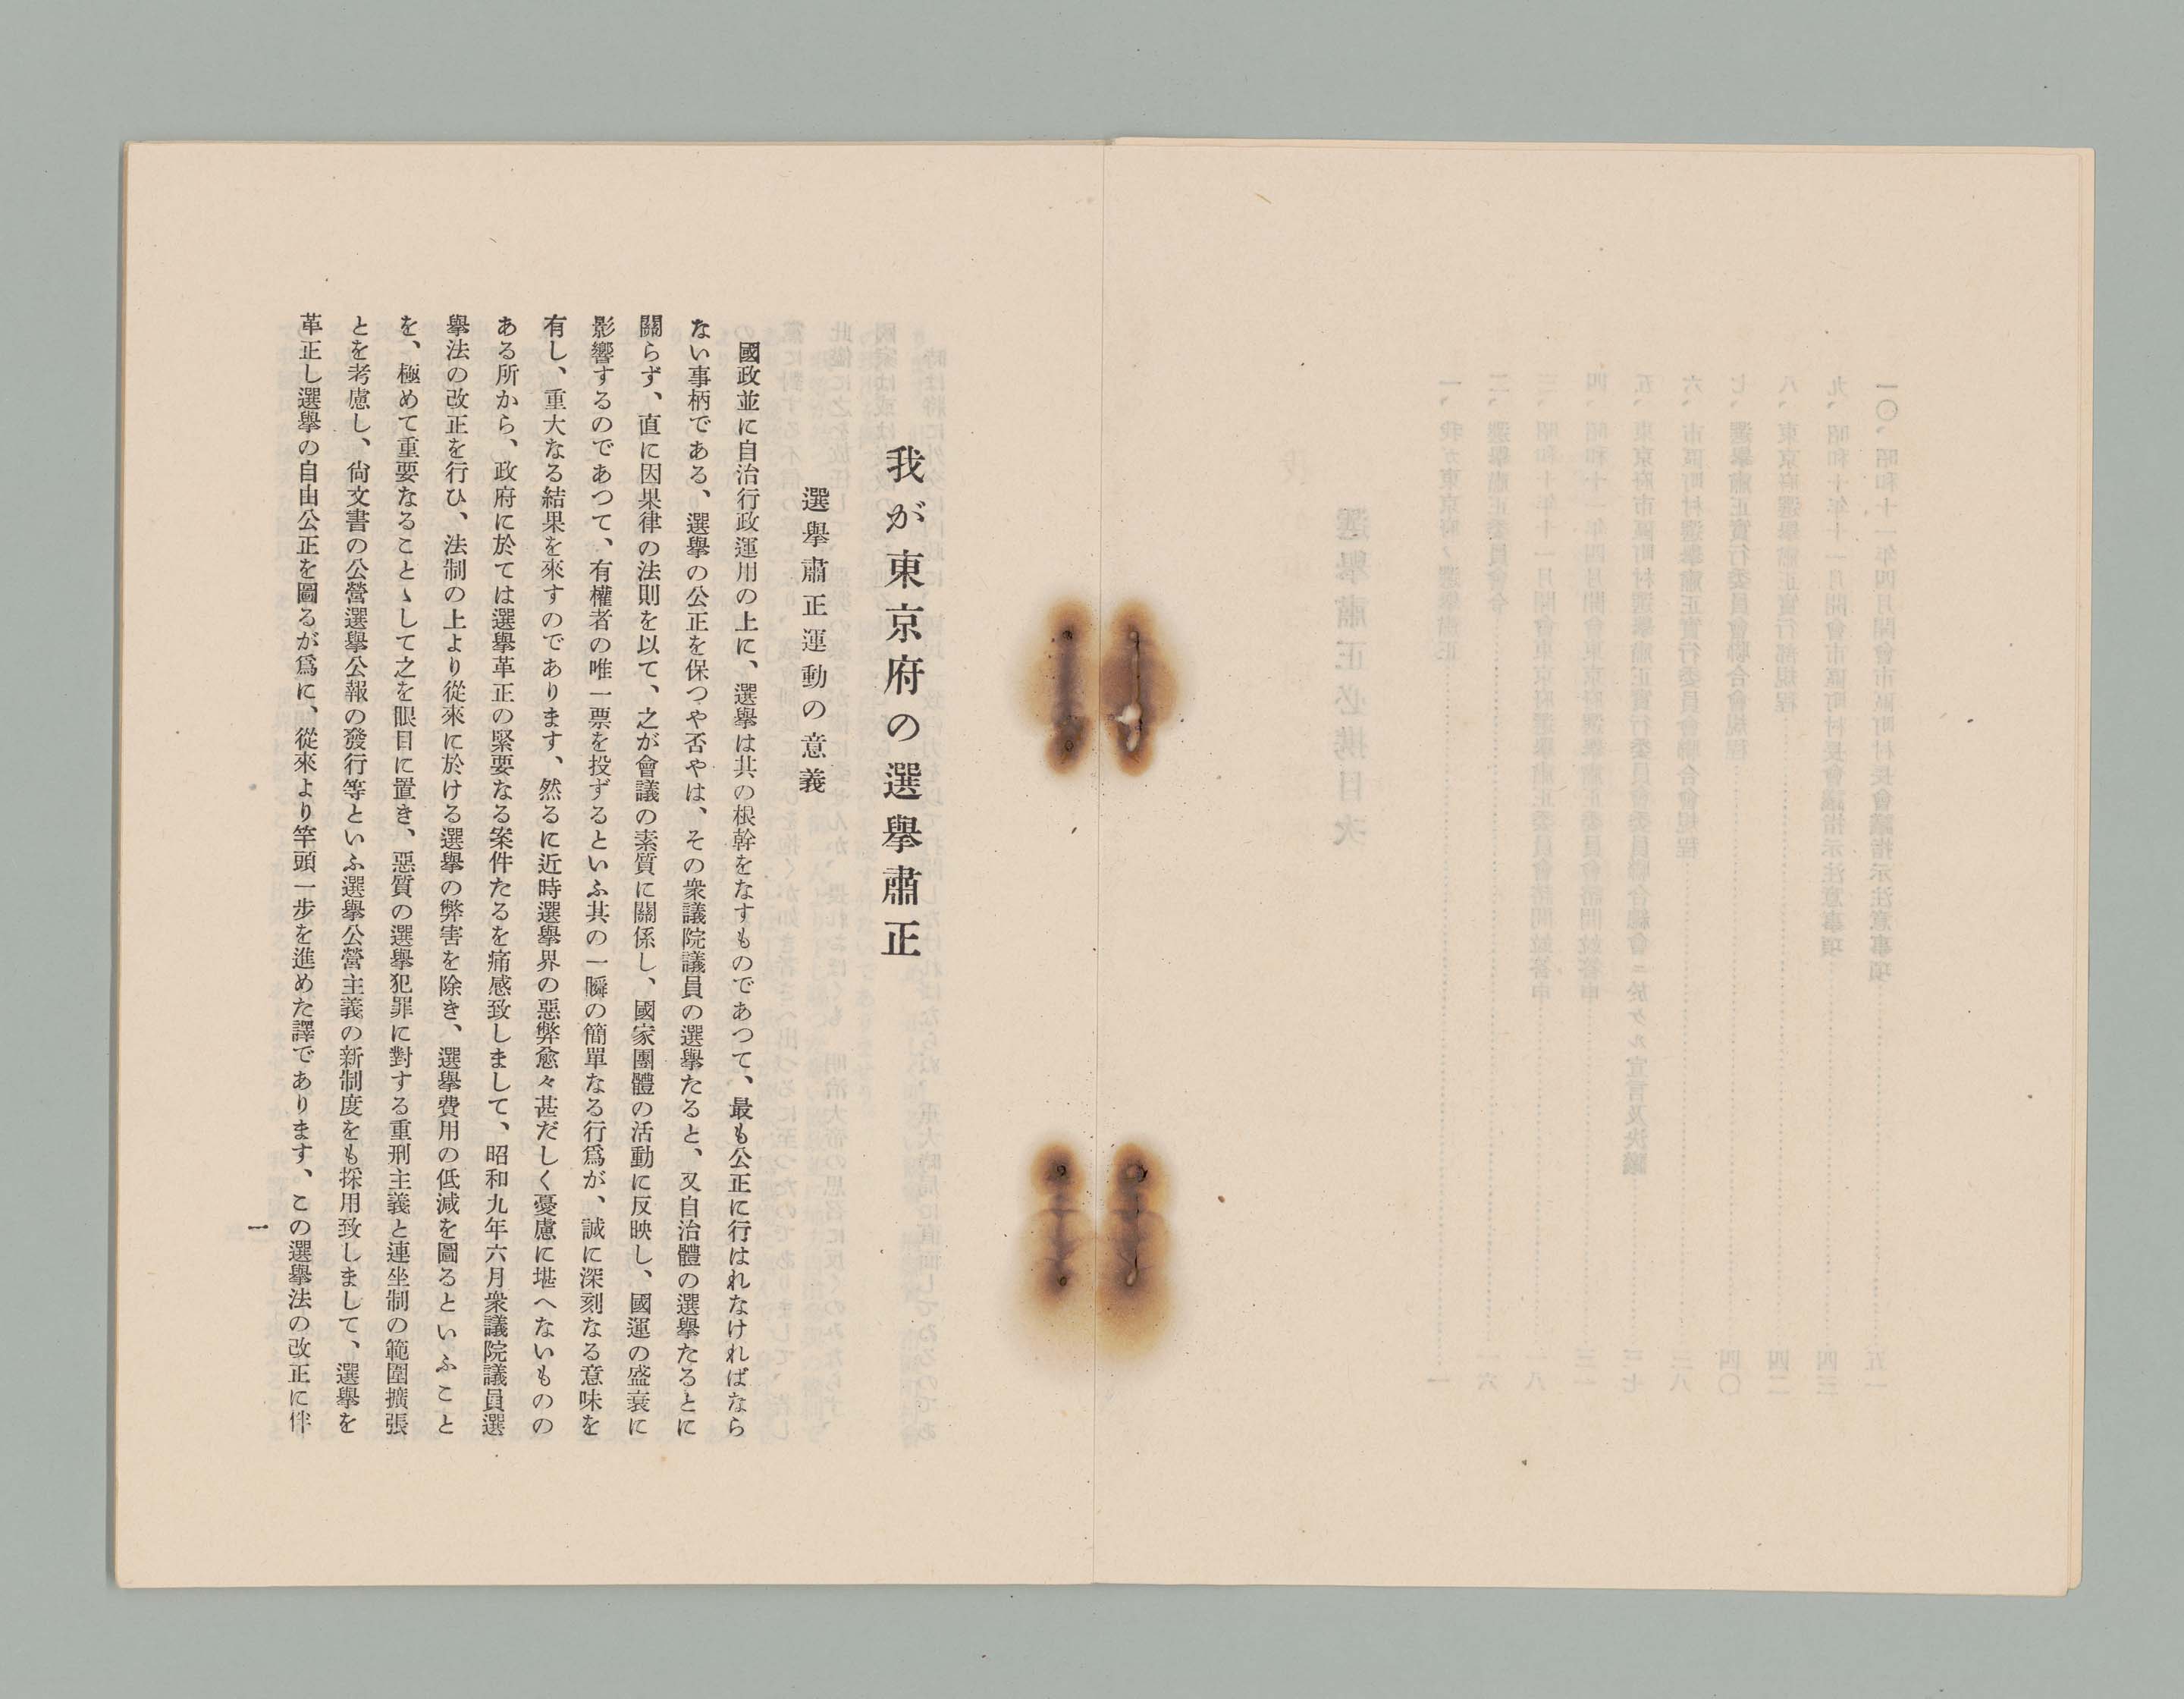 我が東京府の選擧肅正
選擧肅正運動の意義
國政並に自治行政運用の上に、選擧は其の根幹をなすものであつて、最も公正に行はれなければなら
ない事柄である、選擧の公正を保つや否やは、その衆議院議員の選擧たると、又自治體の選擧たるとに
關らず、直に因果律の法則を以て、之が會議の素質に關係し、國家團體の活動に反映し、國運の盛衰に
影響するのであつて、有權者の唯一票を投ずるといふ其の一瞬の簡單なる行爲が、誠に深刻なる意味を
有し、重大なる結果を來すのであります、然るに近時選擧界の惡弊愈々甚だしく憂慮に堪へないものの
ある所から、政府に於ては選擧革正の緊要なる案件たるを痛感致しまして、昭和九年六月衆議院議員選
擧法の改正を行ひ、法制の上より從來に於ける選擧の弊害を除き、選擧費用の低減を圖るといふこと
を、極めて重要なることゝして之を眼目に置き、惡質の選擧犯罪に對する重刑主義と連坐制の範圍擴張
とを考慮し、尙文書の公營選擧公報の發行等といふ選擧公營主義の新制度をも採用致しまして、選擧を
革正し選擧の自由公正を圖るが爲に、從來より竿頭一步を進めた譯であります、この選擧法の改正に伴
一